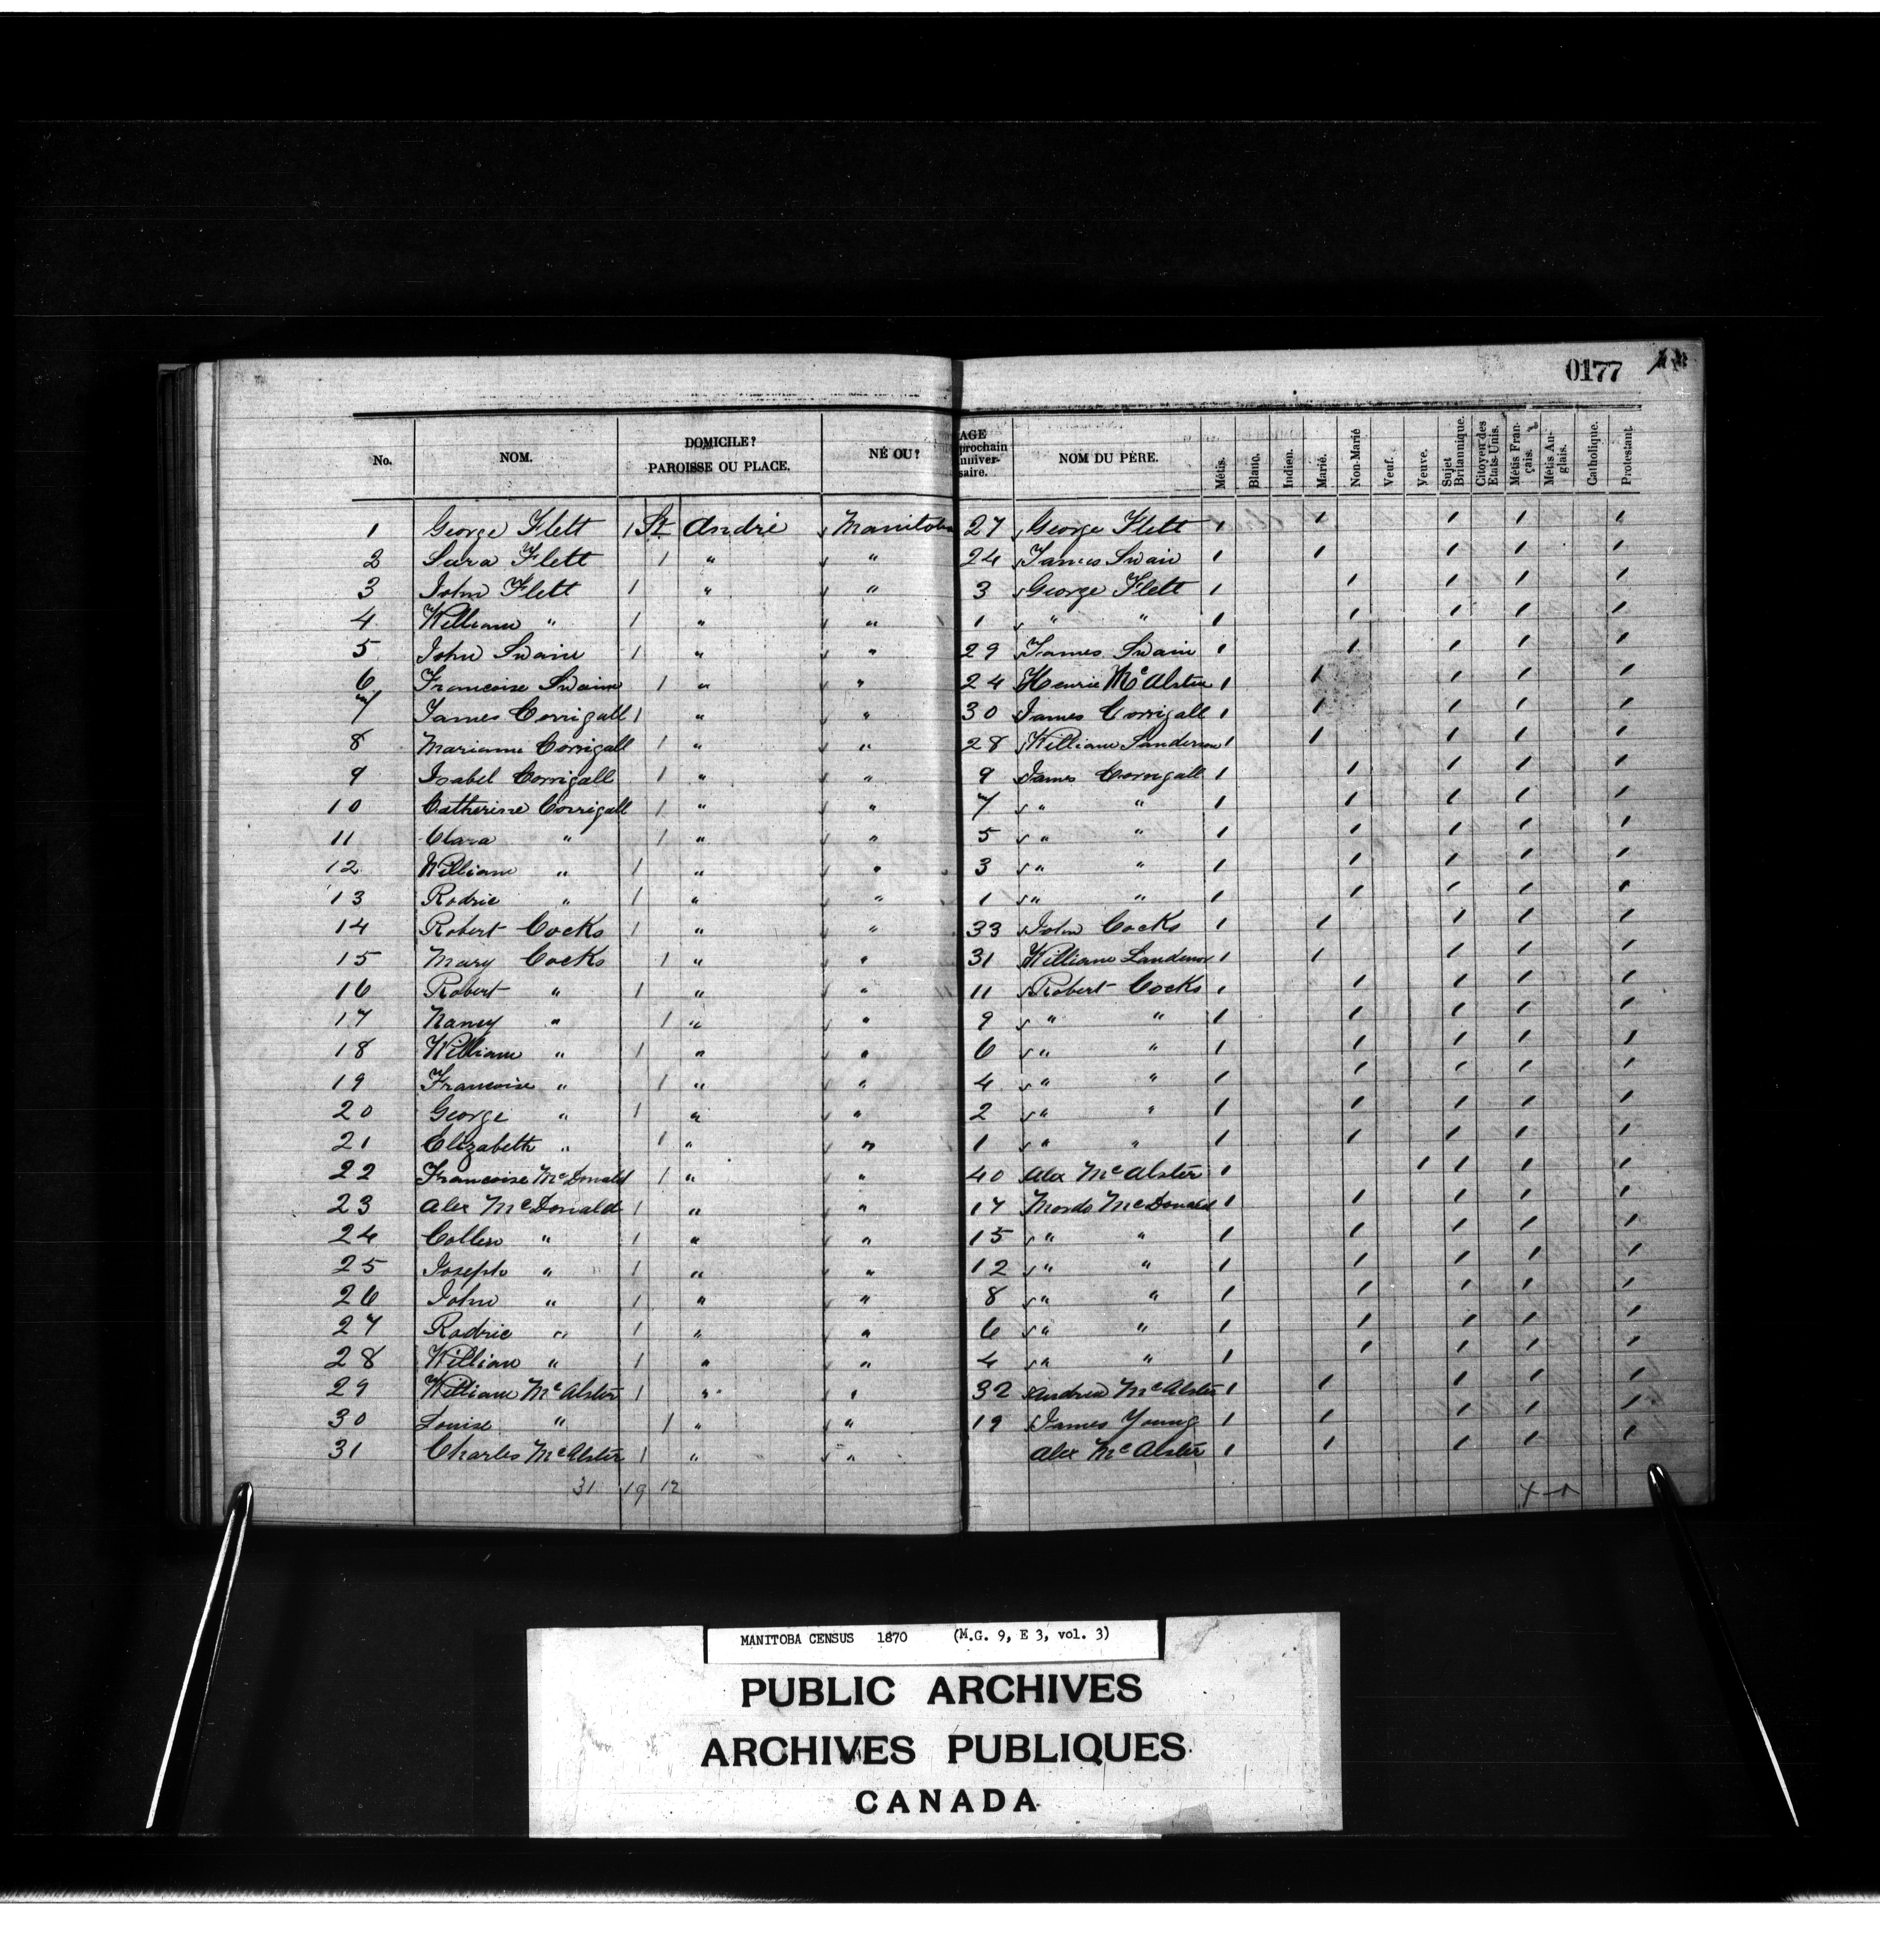 0177
No. NOM. DOMICILE? PAROISSE OU PLACE. NÉ OU? AGE prochain anniver-saire. NOM DU PÈRE. Métis. Blanc. Indien. Marié. Non-Marié Veuf. Veuve. Sujet Britannique. Citoyen des Etats-Unis. Métis Fran-çais. Métis An-glais. Catholique. Protestant.
1 George Flett 1 St André Manitoba 27 George Flett 1 1 1 1 1
2 Sara Flett 1 " " 24 James Swain 1 1 1 1 1
3 John Flett 1 " " 3 George Flett 1 1 1 1 1
4 William " 1 " " 1 " " 1 1 1 1 1
5 John Swain 1 " " 29 James Swain 1 1 1 1 1
6 Francoise Swain 1 " " 24 Henrie McAlster 1 1 1 1 1
7 James Corrigall 1 " " 30 James Corrigall 1 1 1 1 1
8 Marianne Corrigall 1 " " 28 William Sanderson 1 1 1 1 1
9 Isabel Corrigall 1 " " 9 James Corrigall 1 1 1 1 1
10 Catherine Corrigall 1 " " 7 " " 1 1 1 1 1
11 Clara " 1 " " 5 " " 1 1 1 1 1
12 William " 1 " " 3 " " 1 1 1 1 1
13 Rodric " 1 " " 1 " " 1 1 1 1 1
14 Robert Cocks 1 " " 33 John Cocks 1 1 1 1 1
15 Mary Cocks 1 " " 31 William 1 1 1 1 1
16 Robert " 1 " " 11 Robert Cocks 1 1 1 1 1
17 Nancy " 1 " " 9 " " 1 1 1 1 1
18 William " 1 " " 6 " " 1 1 1 1 1
19 Francoise " 1 " " 4 " " 1 1 1 1 1
20 George " 1 " " 2 " " 1 1 1 1 1
21 Elizabeth " 1 " " 1 " " 1 1 1 1 1
22 Francoise McDonald 1 " " 40 Alex McAlster 1 1 1 1 1
23 Alex McDonald 1 " " 17 Mordo McDonald 1 1 1 1 1
24 Collin " 1 " " 15 " " 1 1 1 1 1
25 Joseph " 1 " " 12 " " 1 1 1 1 1
26 John " 1 " " 8 " " 1 1 1 1 1
27 Rodric " 1 " " 6 " " 1 1 1 1 1
28 William " 1 " " 4 " " 1 1 1 1 1
29 William McAlster 1 " " 32 Andrew McAlster 1 1 1 1 1
30 Louise " 1 " " 19 James Young 1 1 1 1 1
31 Charles McAlster 1 " " Alex McAlster 1 1 1 1 1
31 19 12
MANITOBA CENSUS 1870 (M.G. 9, E 3, vol. 3)
PUBLIC ARCHIVES
ARCHIVES PUBLIQUES
CANADA